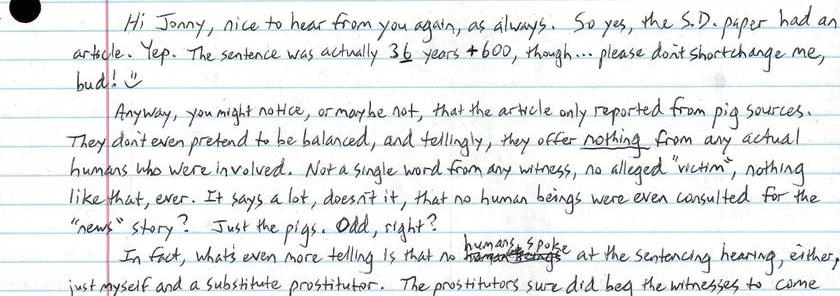 Hi Jonny, nice to hear from you again, as always. So yes, the S.D. paper had an
article. Yep. The sentence was actually 36 years + 600, though... please don't shortchange me,
bud!
Anyway, you might notice, or maybe not, that the article only reported from pig sources.
They don't even pretend to be balanced, and tellingly, they offer nothing from any actual
humans who were involved. Not a single word from any witness, no alleged "victim", nothing
like that, ever. It says a lot, doesn't it, that no human beings were even consulted for the
"news" story? Just the pigs. Odd, right?
In fact, what's even more telling is that no humans spoke at the sentencing hearing, either,
just myself and a substitute prostitutor. The prostitutors sure did beg the witnesses to come